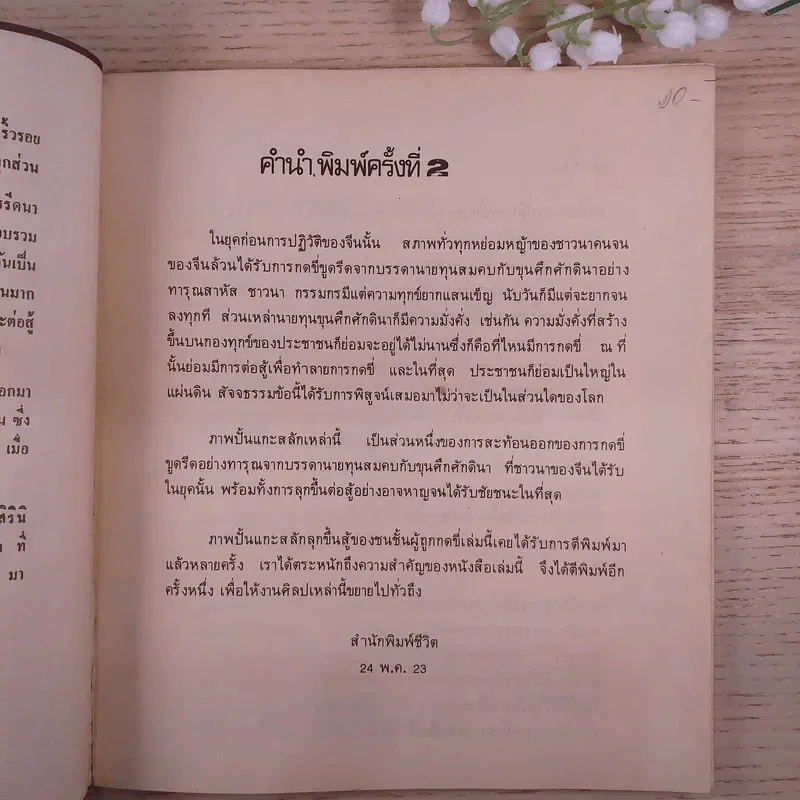 ริ้วรอย
ทุกส่วน
รีดนา
บรวม
วันเป็น
นมาก
ะต่อสู้
อกมา
น ซึ่ง
เมื่อ
สิรินิ
ที่
มา
๑๐-
คำนำ พิมพ์ครั้งที่ 2
ในยุคก่อนการปฏิวัติของจีนนั้น สภาพทั่วทุกหย่อมหญ้าของชาวนาคนจน
ของจีนล้วนได้รับการกดขี่ขูดรีดจากบรรดานายทุนสมคบกับขุนศึกศักดินาอย่าง
ทารุณสาหัส ชาวนา กรรมกรมีแต่ความทุกข์ยากแสนเข็ญ นับวันก็มีแต่จะยากจน
ลงทุกที ส่วนเหล่านายทุนขุนศึกศักดินาก็มีความมั่งคั่ง เช่นกัน ความมั่งคั่งที่สร้าง
ขึ้นบนกองทุกข์ของประชาชนก็ย่อมจะอยู่ได้ไม่นานซึ่งก็คือที่ไหนมีการกดขี่ ณ ที่
นั้นย่อมมีการต่อสู้เพื่อทำลายการกดขี่ และในที่สุด ประชาชนก็ย่อมเป็นใหญ่ใน
แผ่นดิน สัจจธรรมข้อนี้ได้รับการพิสูจน์เสมอมาไม่ว่าจะเป็นในส่วนใดของโลก
ภาพปั้นแกะสลักเหล่านี้ เป็นส่วนหนึ่งของการสะท้อนออกของการกดขี่
ขูดรีดอย่างทารุณจากบรรดานายทุนสมคบกับขุนศึกศักดินา ที่ชาวนาของจีนได้รับ
ในยุคนั้น พร้อมทั้งการลุกขึ้นต่อสู้อย่างอาจหาญจนได้รับชัยชนะในที่สุด
ภาพปั้นแกะสลักลุกขึ้นสู้ของชนชั้นผู้ถูกกดขี่เล่มนี้เคยได้รับการตีพิมพ์มา
แล้วหลายครั้ง เราได้ตระหนักถึงความสำคัญของหนังสือเล่มนี้ จึงได้ตีพิมพ์อีก
ครั้งหนึ่ง เพื่อให้งานศิลปเหล่านี้ขยายไปทั่วถึง
สำนักพิมพ์ชีวิต
24 พ.ค. 23